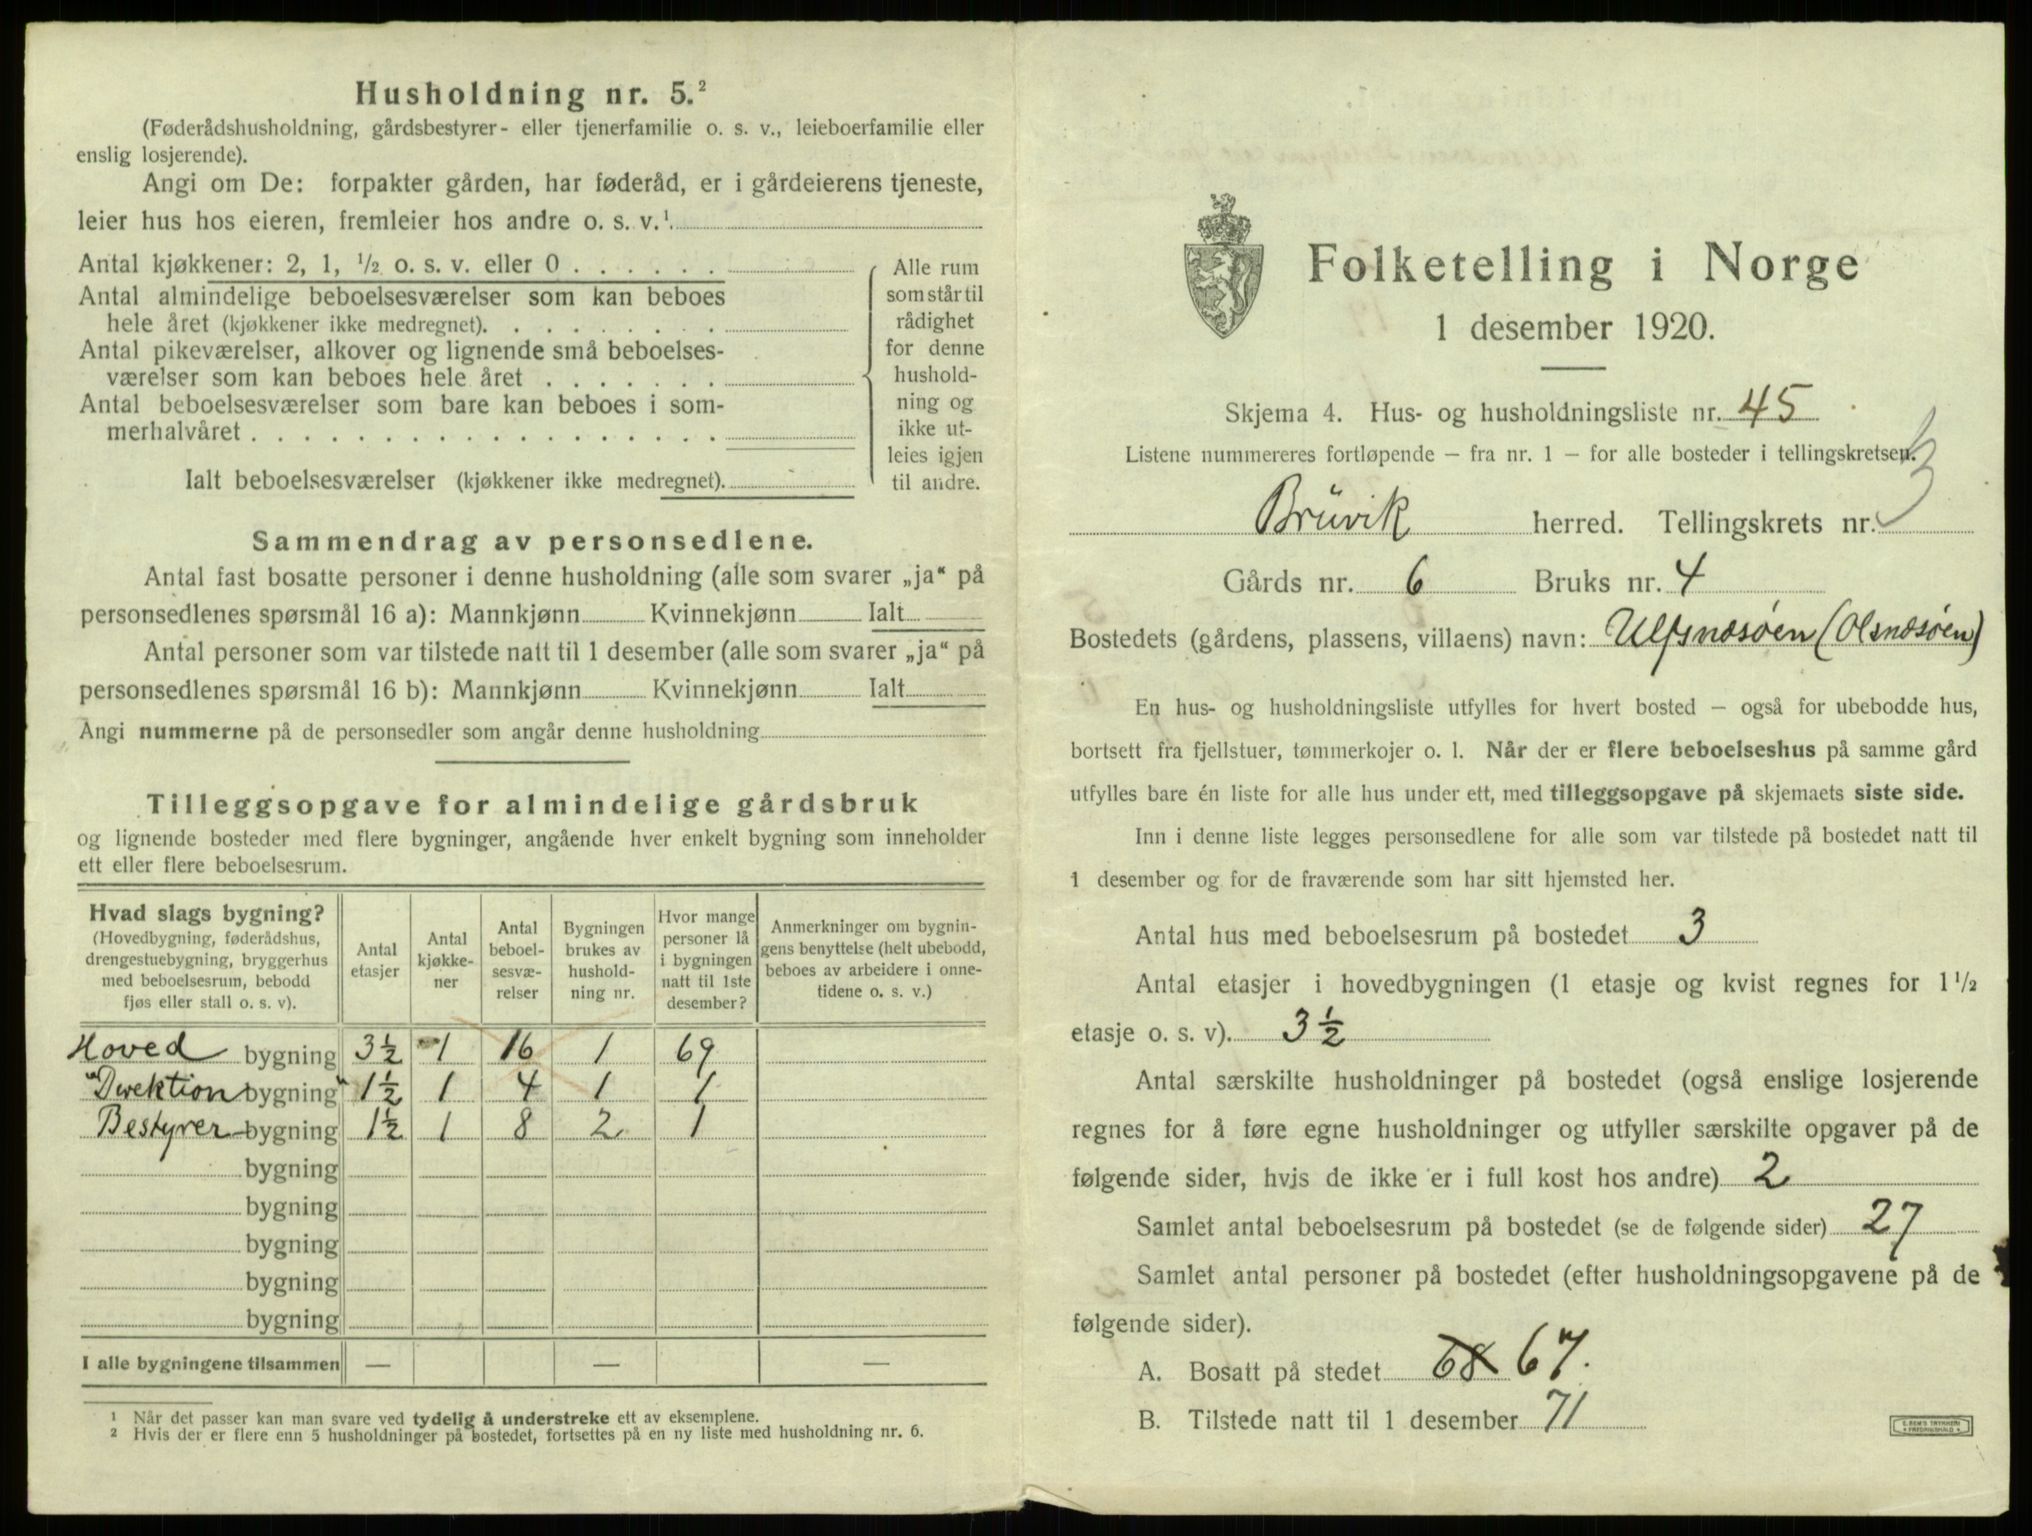 Husholdning nr. 5.²
(Føderådshusholdning, gårdsbestyrer- eller tjenerfamilie o. s. v., leieboerfamilie eller
enslig losjerende).
Angi om De: forpakter gården, har føderåd, er i gårdeierens tjeneste,
leier hus hos eieren, fremleier hos andre o. s. v.¹
Antal kjøkkener: 2, 1, ½ o. s. v. eller 0 . . . . . .
Antal almindelige beboelsesværelser som kan beboes
hele året (kjøkkener ikke medregnet). . . . . . . . .
Antal pikeværelser, alkover og lignende små beboelses-
værelser som kan beboes hele året . . . . . . .
Antal beboelsesværelser som bare kan beboes i som-
merhalvåret . . . . . . . . . . . . . . . . . .
Ialt beboelsesværelser (kjøkkener ikke medregnet).
Alle rum
som står til
rådighet
for denne
hushold-
ning og
ikke ut-
leies igjen
til andre.
Sammendrag av personsedlene.
Antal fast bosatte personer i denne husholdning (alle som svarer „ja“ på
personsedlenes spørsmål 16 a): Mannkjønn Kvinnekjønn Ialt
Antal personer som var tilstede natt til 1 desember (alle som svarer „ja“ på
personsedlenes spørsmål 16 b): Mannkjønn Kvinnekjønn Ialt
Angi nummerne på de personsedler som angår denne husholdning
Tilleggsopgave for almindelige gårdsbruk
og lignende bosteder med flere bygninger, angående hver enkelt bygning som inneholder
ett eller flere beboelsesrum.
Hvad slags bygning?
(Hovedbygning, føderådshus,
drengestuebygning, bryggerhus
med beboelsesrum, bebodd
fjøs eller stall o. s. v).
Antal
etasjer
Antal
kjøkke-
ner
Antal
beboel-
sesvæ-
relser
Bygningen
brukes av
hushold-
ning nr.
Hvor mange
personer lå
i bygningen
natt til 1ste
desember?
Anmerkninger om bygnin-
gens benyttelse (helt ubebodd,
beboes av arbeidere i onne-
tidene o. s. v.)
Hoved bygning 3½ 1 16 1 69
"Direktion bygning" 1½ 1 4 1 1
Bestyrer- bygning 1½ 1 8 2 1
bygning
bygning
bygning
bygning
bygning
I alle bygningene tilsammen — — —
¹ Når det passer kan man svare ved tydelig å understreke ett av eksemplene.
² Hvis der er flere enn 5 husholdninger på bostedet, fortsettes på en ny liste med husholdning nr. 6.
Folketelling i Norge
1 desember 1920.
Skjema 4. Hus- og husholdningsliste nr. 45
Listene nummereres fortløpende – fra nr. 1 – for alle bosteder i tellingskretsen.
Brüvik herred. Tellingskrets nr. 3
Gårds nr. 6 Bruks nr. 4
Bostedets (gårdens, plassens, villaens) navn: Ulfsnæsøen (Olsnæsøen)
En hus- og husholdningsliste utfylles for hvert bosted – også for ubebodde hus,
bortsett fra fjellstuer, tømmerkojer o. l. Når der er flere beboelseshus på samme gård
utfylles bare én liste for alle hus under ett, med tilleggsopgave på skjemaets siste side.
Inn i denne liste legges personsedlene for alle som var tilstede på bostedet natt til
1 desember og for de fraværende som har sitt hjemsted her.
Antal hus med beboelsesrum på bostedet 3
Antal etasjer i hovedbygningen (1 etasje og kvist regnes for 1½
etasje o. s. v). 3½
Antal særskilte husholdninger på bostedet (også enslige losjerende
regnes for å føre egne husholdninger og utfyller særskilte opgaver på de
følgende sider, hvis de ikke er i full kost hos andre) 2
Samlet antal beboelsesrum på bostedet (se de følgende sider) 27
Samlet antal personer på bostedet (efter husholdningsopgavene på de
følgende sider).
A. Bosatt på stedet 68 67.
B. Tilstede natt til 1 desember 71